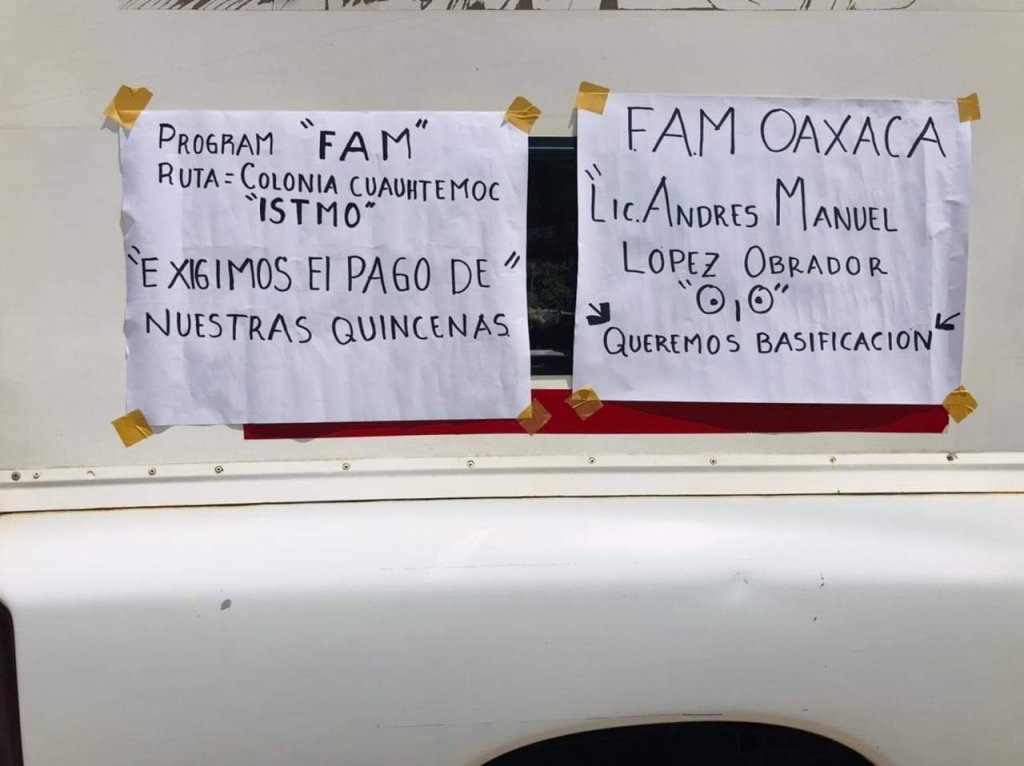 PROGRAM "FAM"
RUTA = COLONIA CUAUHTEMOC
"ISTMO"
"EXIGIMOS El PAGO DE"
NUESTRAS QUINCENAS
F.A.M OAXACA
"Lic. ANDRES MANUEL
LOPEZ OBRADOR
QUEREMOS BASIFICACION